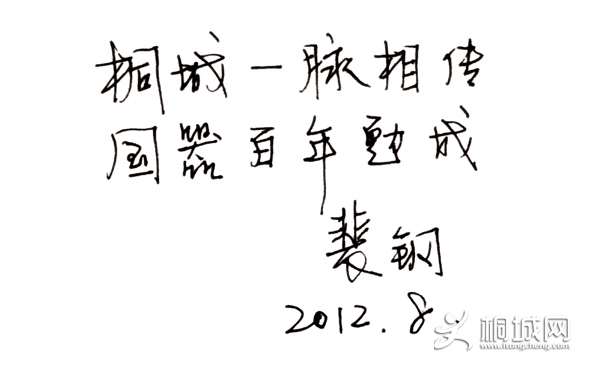 桐城一脉相传
国器百年成
裴钢
2012.8.
桐城网
www.itongcheng.com